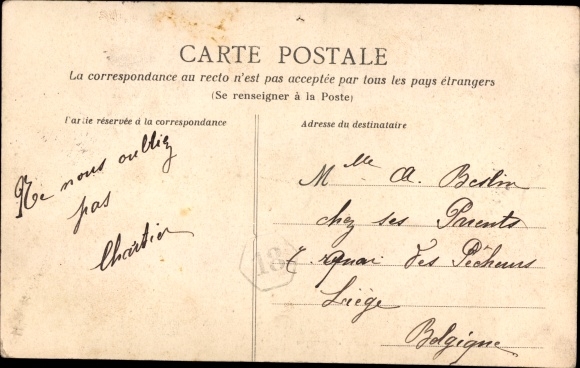 CARTE POSTALE
La correspondance au recto n'est pas acceptée par tous les pays étrangers
(Se renseigner à la Poste)
Partie réservée à la correspondance
Ne nous oubliez
pas
Chartier
Adresse du destinataire
Mlle A. Beslin
chez ses Parents
7 quai des Pêcheurs
Liège
Belgique
18